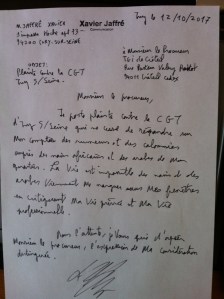 M. JAFFRÉ XAVIER
Xavier Jaffré
Ivry le 12/10/2017
à Monsieur le Procureur
OBJET:
Plainte contre la CGT
Ivry S/Seine.
Monsieur le procureur,
Je porte plainte contre la CGT
d'Ivry S/Seine qui ne cesse de répandre sur
Mon compte des rumeurs et des calomnies
auprès des noirs africains et des arabes de Mon
quartier. La Vie est impossible les noirs et les
arabes Viennent Me narguer sous Mes fenêtres
en critiquant Ma Vie privée et Ma Vie
professionnelle.
Dans l'attente, je Vous prie d'agréer
Monsieur le procureur, l'expression de Ma considération
distinguée.